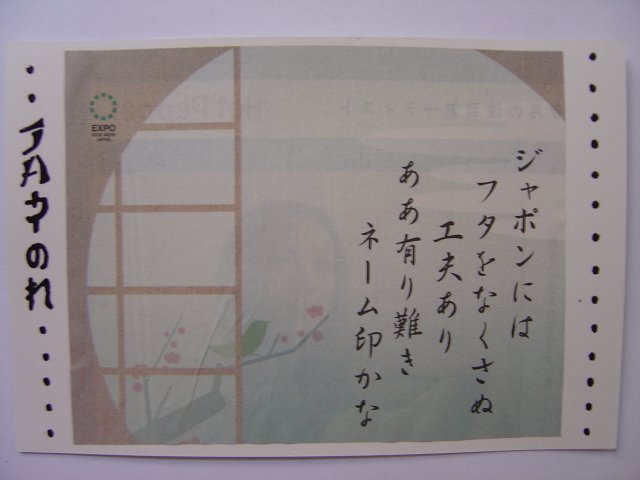 ジャポンには
フタをなくさぬ
工夫あり
ああ有り難き
ネーム印かな
EXPO
2005 AICHI
JAPAN